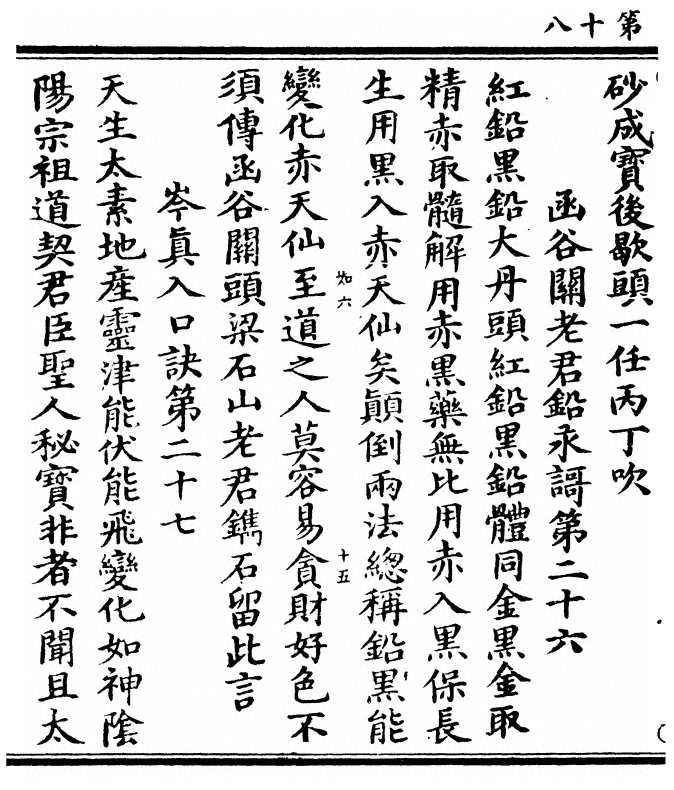 第十八
砂成寶後歇頭一任丙丁吹
函谷關老君鉛汞謌第二十六
紅鉛黑鉛大丹頭紅鉛黑鉛體同金黑金取
精赤取髓解用赤黑藥無比用赤入黑保長
生用黑入赤天仙矣顛倒兩法緫稱鉛黑能
知六
十五
變化赤天仙至道之人莫容易貪財好色不
須傳函谷關頭梁石山老君鐫石留此言
岑眞入口訣第二十七
天生太素地産靈津能伏能飛變化如神陰
陽宗祖道契君臣聖人秘寶非者不聞且太